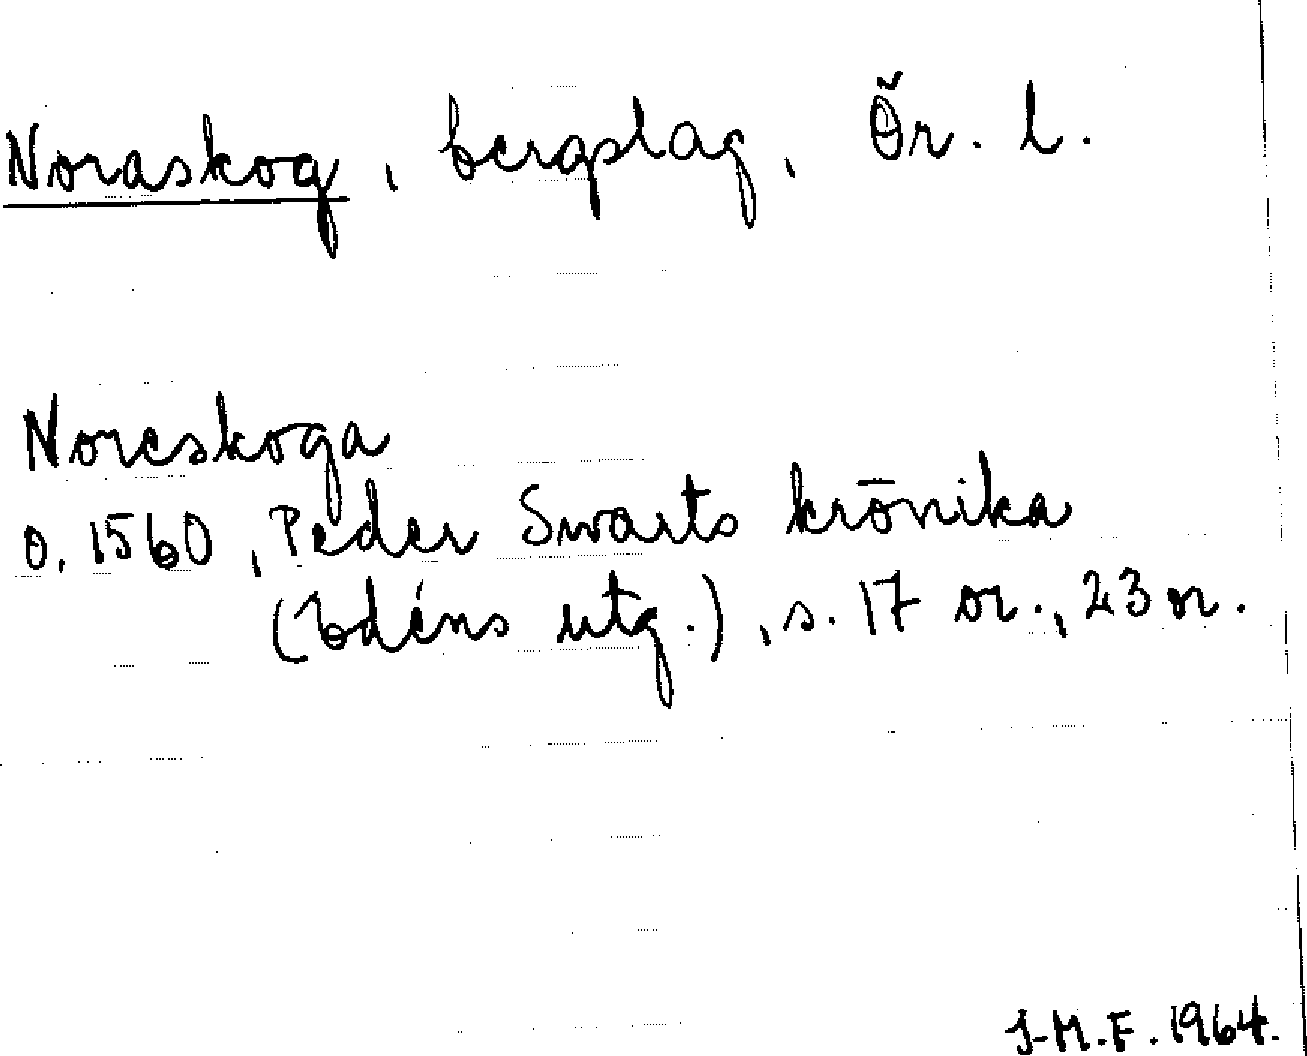 Noraskog, bergslag, Ör. l.
Noreskoga
o. 1560, Peder Swarts krönika
(Edéns utg.), s. 17 or., 23 or.
J-M.F. 1964.